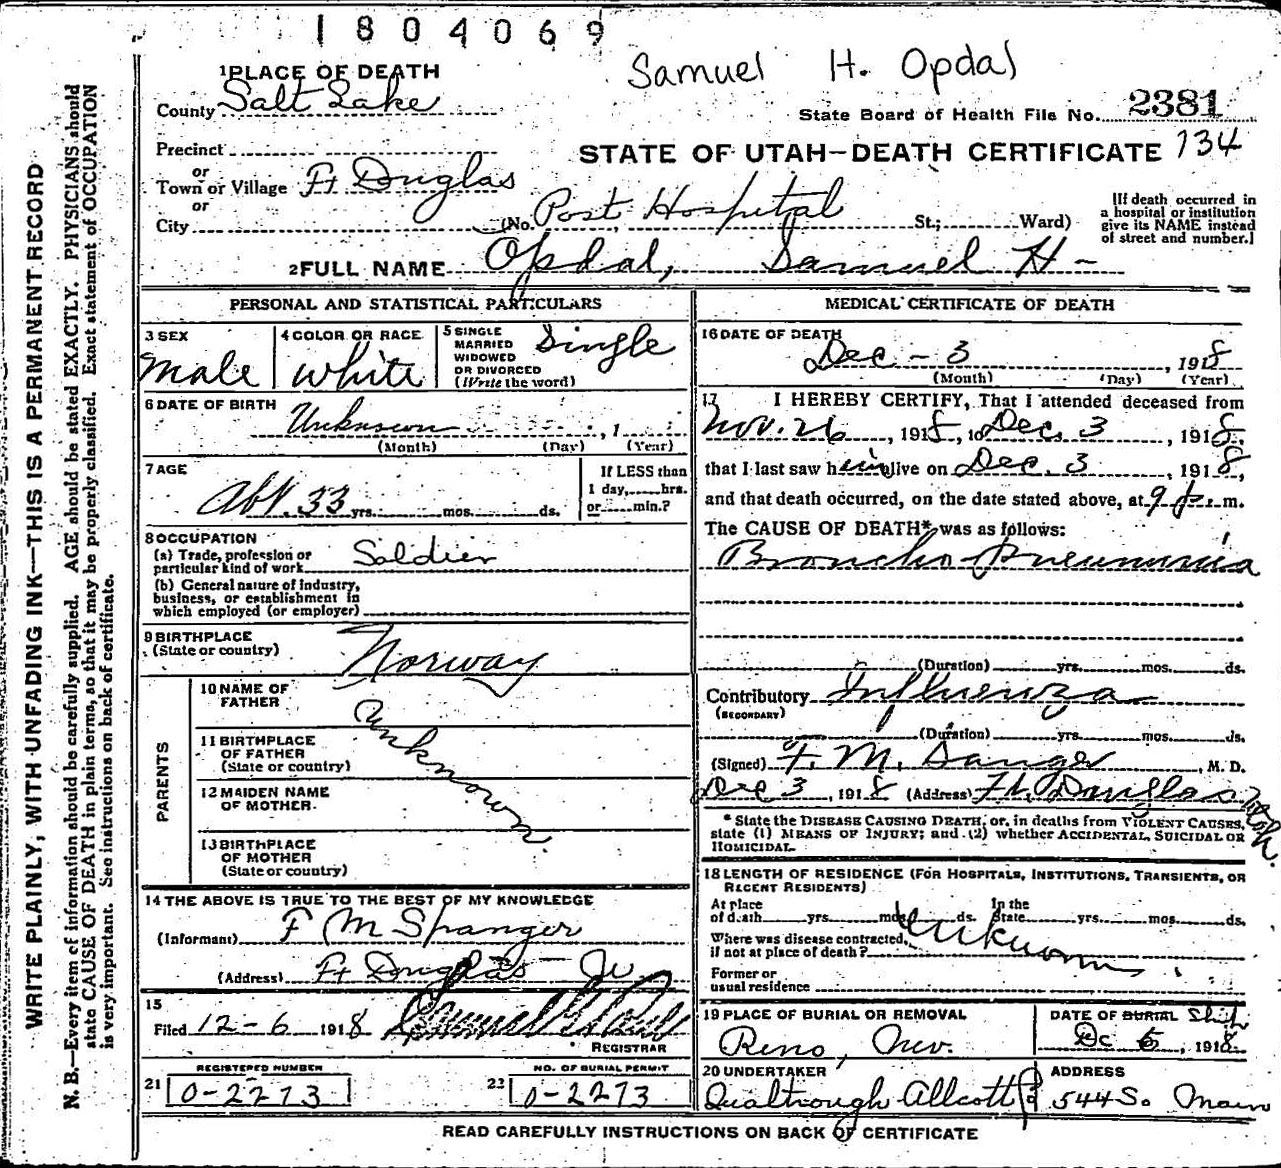 1804069
Samuel H. Opdal
1 PLACE OF DEATH
County Salt Lake
State Board of Health File No. 2381
Precinct
STATE OF UTAH—DEATH CERTIFICATE 134
or
Town or Village Ft Douglas
or
City (No. Post Hospital St.; Ward)
[If death occurred in
a hospital or institution
give its NAME instead
of street and number.]
2 FULL NAME Opdal, Samuel H-
PERSONAL AND STATISTICAL PARTICULARS
3 SEX
Male
4 COLOR OR RACE
White
5 SINGLE
MARRIED
WIDOWED
OR DIVORCED
(Write the word)
Single
6 DATE OF BIRTH
Unknown , 1
(Month) (Day) (Year)
7 AGE
Abt. 33 yrs. mos. ds.
If LESS than
1 day, hrs.
or min.?
8 OCCUPATION
(a) Trade, profession or
particular kind of work Soldier
(b) General nature of industry,
business, or establishment in
which employed (or employer)
9 BIRTHPLACE
(State or country)
Norway
PARENTS
10 NAME OF
FATHER
11 BIRTHPLACE
OF FATHER
(State or country)
12 MAIDEN NAME
OF MOTHER
13 BIRTHPLACE
OF MOTHER
(State or country)
Unknown
14 THE ABOVE IS TRUE TO THE BEST OF MY KNOWLEDGE
(Informant) F M Spanger
(Address) Ft Douglas
15
Filed 12-6 1918
REGISTRAR
REGISTERED NUMBER
21 0-2273
NO. OF BURIAL PERMIT
22 0-2273
MEDICAL CERTIFICATE OF DEATH
16 DATE OF DEATH
Dec - 3, 1918
(Month) (Day) (Year)
17 I HEREBY CERTIFY, That I attended deceased from
Nov. 26, 1918, to Dec. 3, 1918,
that I last saw him alive on Dec. 3, 1918,
and that death occurred, on the date stated above, at 9 p. m.
The CAUSE OF DEATH* was as follows:
Broncho-Pneumonia
(Duration) yrs. mos. ds.
Contributory Influenza
(SECONDARY)
(Duration) yrs. mos. ds.
(Signed) F. M. , M. D.
Dec 3, 1918 (Address) Ft. Douglas Utah.
* State the DISEASE CAUSING DEATH, or, in deaths from VIOLENT CAUSES,
state (1) MEANS OF INJURY; and (2) whether ACCIDENTAL, SUICIDAL OR
HOMICIDAL.
18 LENGTH OF RESIDENCE (FOR HOSPITALS, INSTITUTIONS, TRANSIENTS, OR
RECENT RESIDENTS)
At place
of death yrs. mos. ds.
In the
State yrs. mos. ds.
Where was disease contracted,
if not at place of death? Unknown
Former or
usual residence
19 PLACE OF BURIAL OR REMOVAL
Reno, Nev.
DATE OF BURIAL Ship
Dc 6, 1918
20 UNDERTAKER
Qualtrough Allcott
ADDRESS
544 So Main
READ CAREFULLY INSTRUCTIONS ON BACK OF CERTIFICATE
WRITE PLAINLY, WITH UNFADING INK—THIS IS A PERMANENT RECORD
N. B.—Every item of information should be carefully supplied. AGE should be stated EXACTLY. PHYSICIANS should
state CAUSE OF DEATH in plain terms, so that it may be properly classified. Exact statement of OCCUPATION
is very important. See instructions on back of certificate.